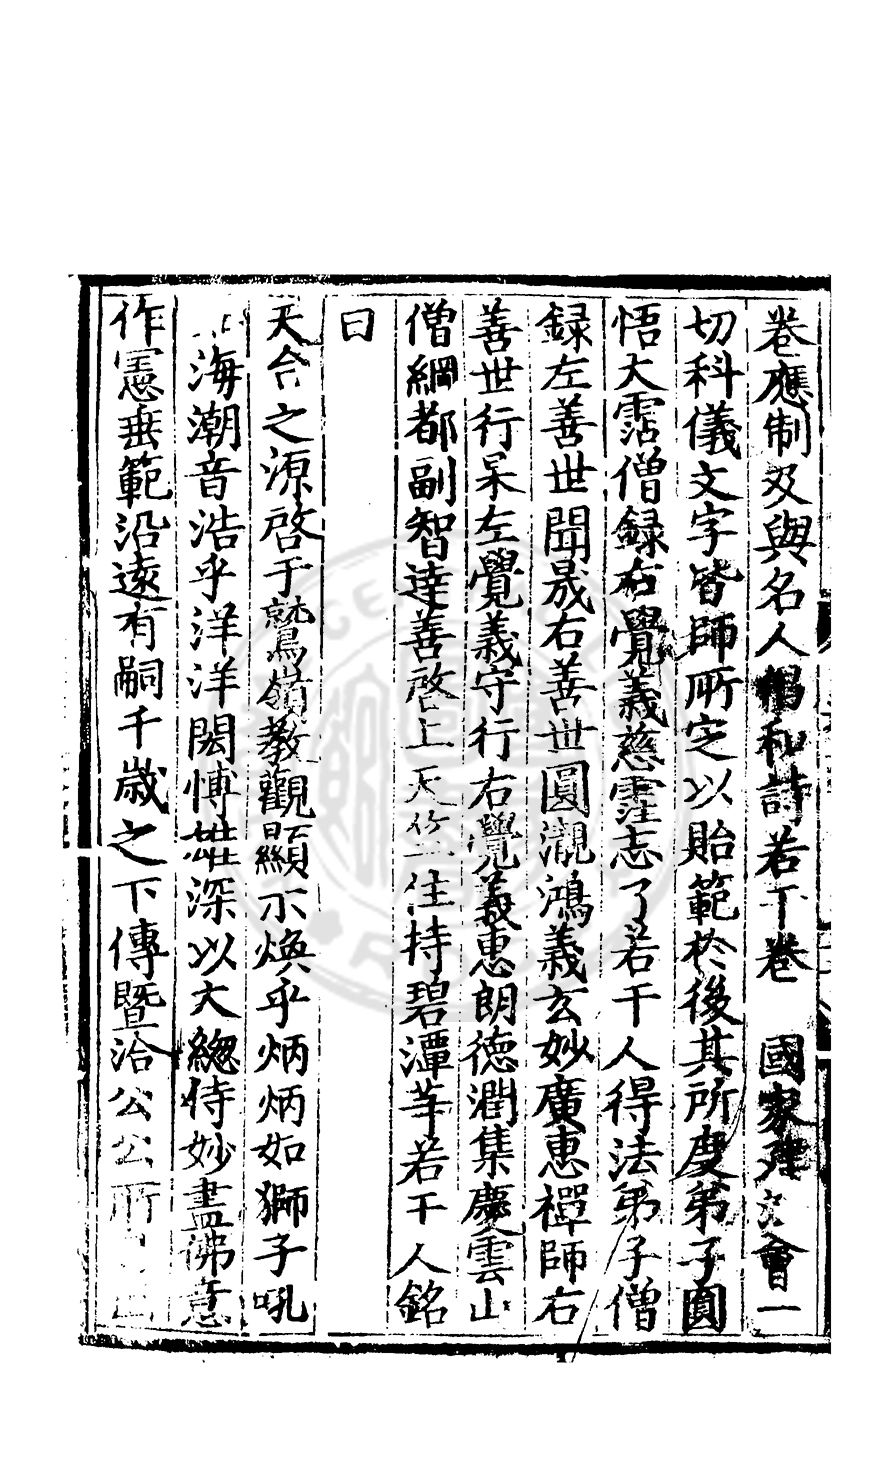 卷應制及與名人倡和詩若干卷　國家建法會一
切科儀文字皆師所定以貽範於後其所度弟子圓
悟大霑僧録右覺義慈霔志了若干人得法弟子僧
録左善世聞晟右善世圓瀞鴻義玄妙廣惠禪師右
善世行杲左覺義守行右覺義惠朗德潤集慶雲山
僧綱都副智達善啓上天竺住持碧潭等若干人銘
曰
天台之源啓于鷲嶺教觀顯示煥乎炳炳如獅子吼
海潮音浩乎洋洋閎博雄深以大總持妙盡佛意
作憲垂範沿遠有嗣千歲之下傳曁洽公公所